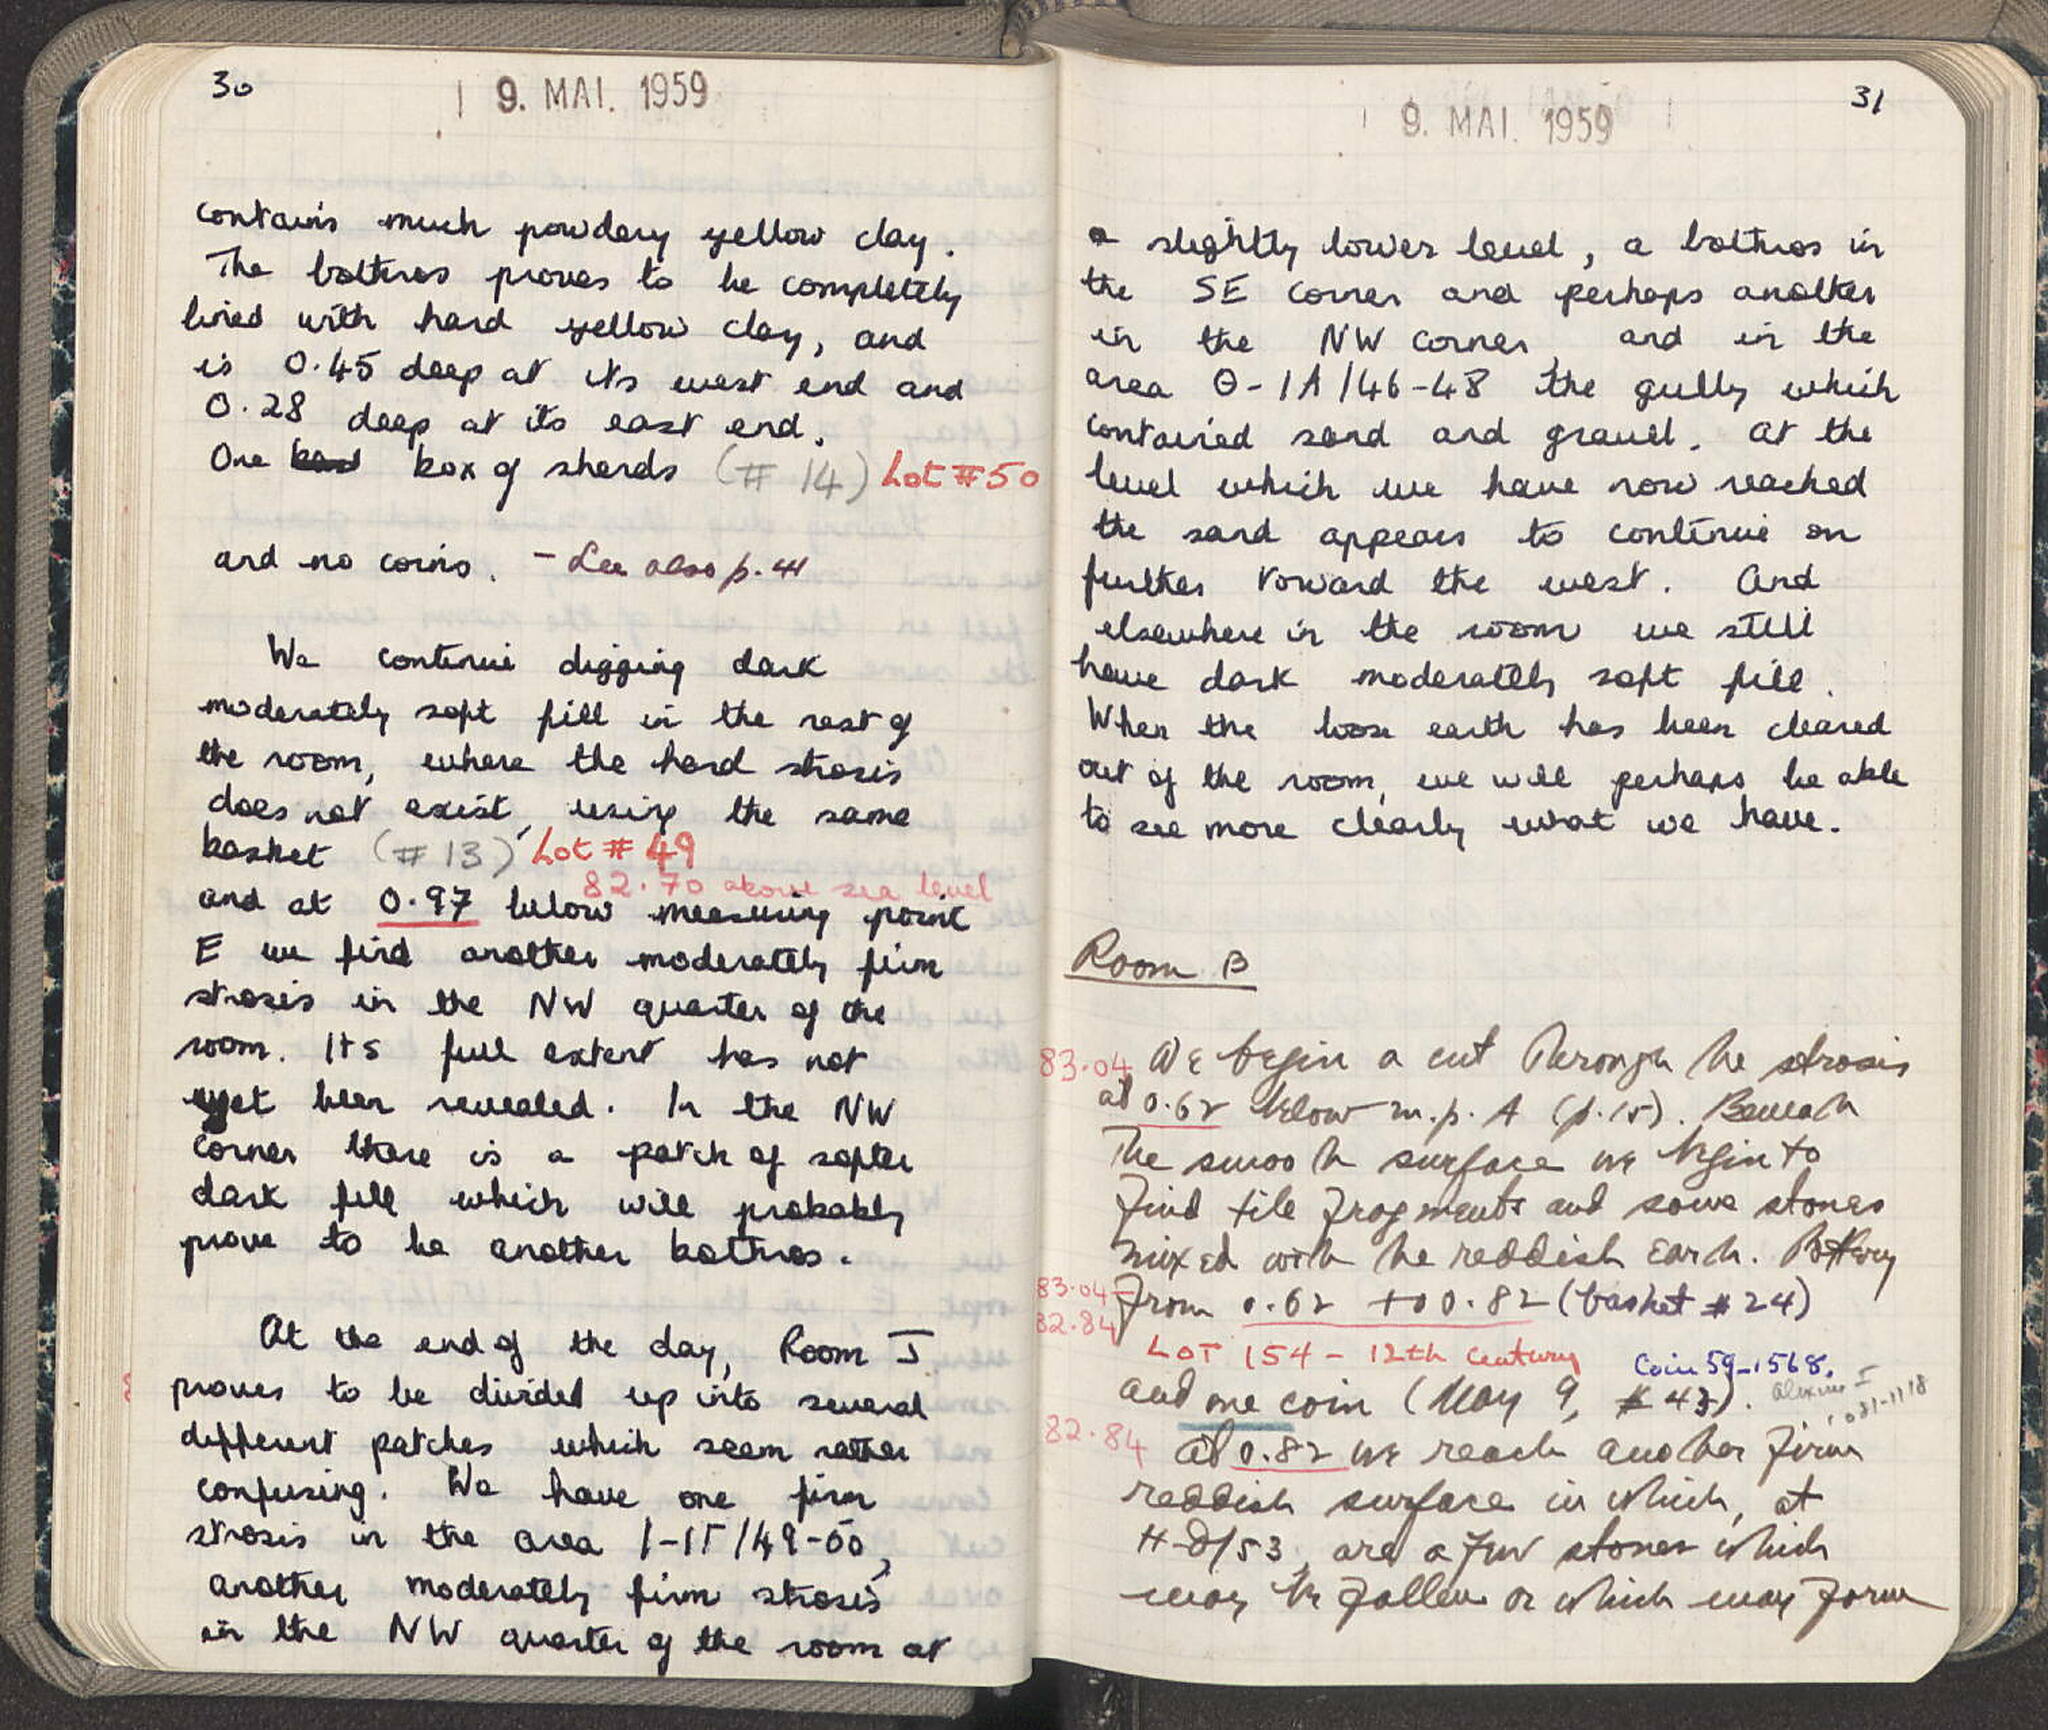 30
9. MAI. 1959
contains much powdery yellow clay.
The bothros proves to be completely
lined with hard yellow clay, and
is 0.45 deep at its west end and
0.28 deep at its east end.
One box of sherds (# 14) Lot #50
and no coins. - See also p. 41
We continue digging dark
moderately soft fill in the rest of
the room, where the hard strosis
does not exist, using the same
basket (# 13) Lot # 49
82.70 above sea level
and at 0.97 below measuring point
E we find another moderately firm
strosis in the NW quarter of the
room. Its full extent has not
yet been revealed. In the NW
corner there is a patch of softer
dark fill which will probably
prove to be another bothros.
At the end of the day, Room I
proves to be divided up into several
different patches which seem rather
confusing. We have one firm
strosis in the area 1-1Γ/49-50,
another moderately firm strosis
in the NW quarter of the room at
31
9. MAI. 1959
a slightly lower level, a bothros in
the SE corner and perhaps another
in the NW corner, and in the
area Θ-1A/46-48 the gully which
contained sand and gravel. At the
level which we have now reached
the sand appears to continue on
further toward the west. And
elsewhere in the room we still
have dark moderately soft fill.
When the loose earth has been cleared
out of the room, we will perhaps be able
to see more clearly what we have.
Room B
83.04 We begin a cut through the strosis
at 0.62 below m.p. A (p.15). Beneath
the smooth surface we begin to
find tile fragments and some stones
mixed with the reddish earth. Pottery
83.04-
82.84
from 0.62 to 0.82 (basket # 24)
LOT 154 - 12th century Coin 59-1568.
and one coin (May 9, # 43). Alexius I
1081-1118
82.84 At 0.82 we reach another firm
reddish surface in which, at
H-Θ/53, are a few stones which
may be fallen or which may form